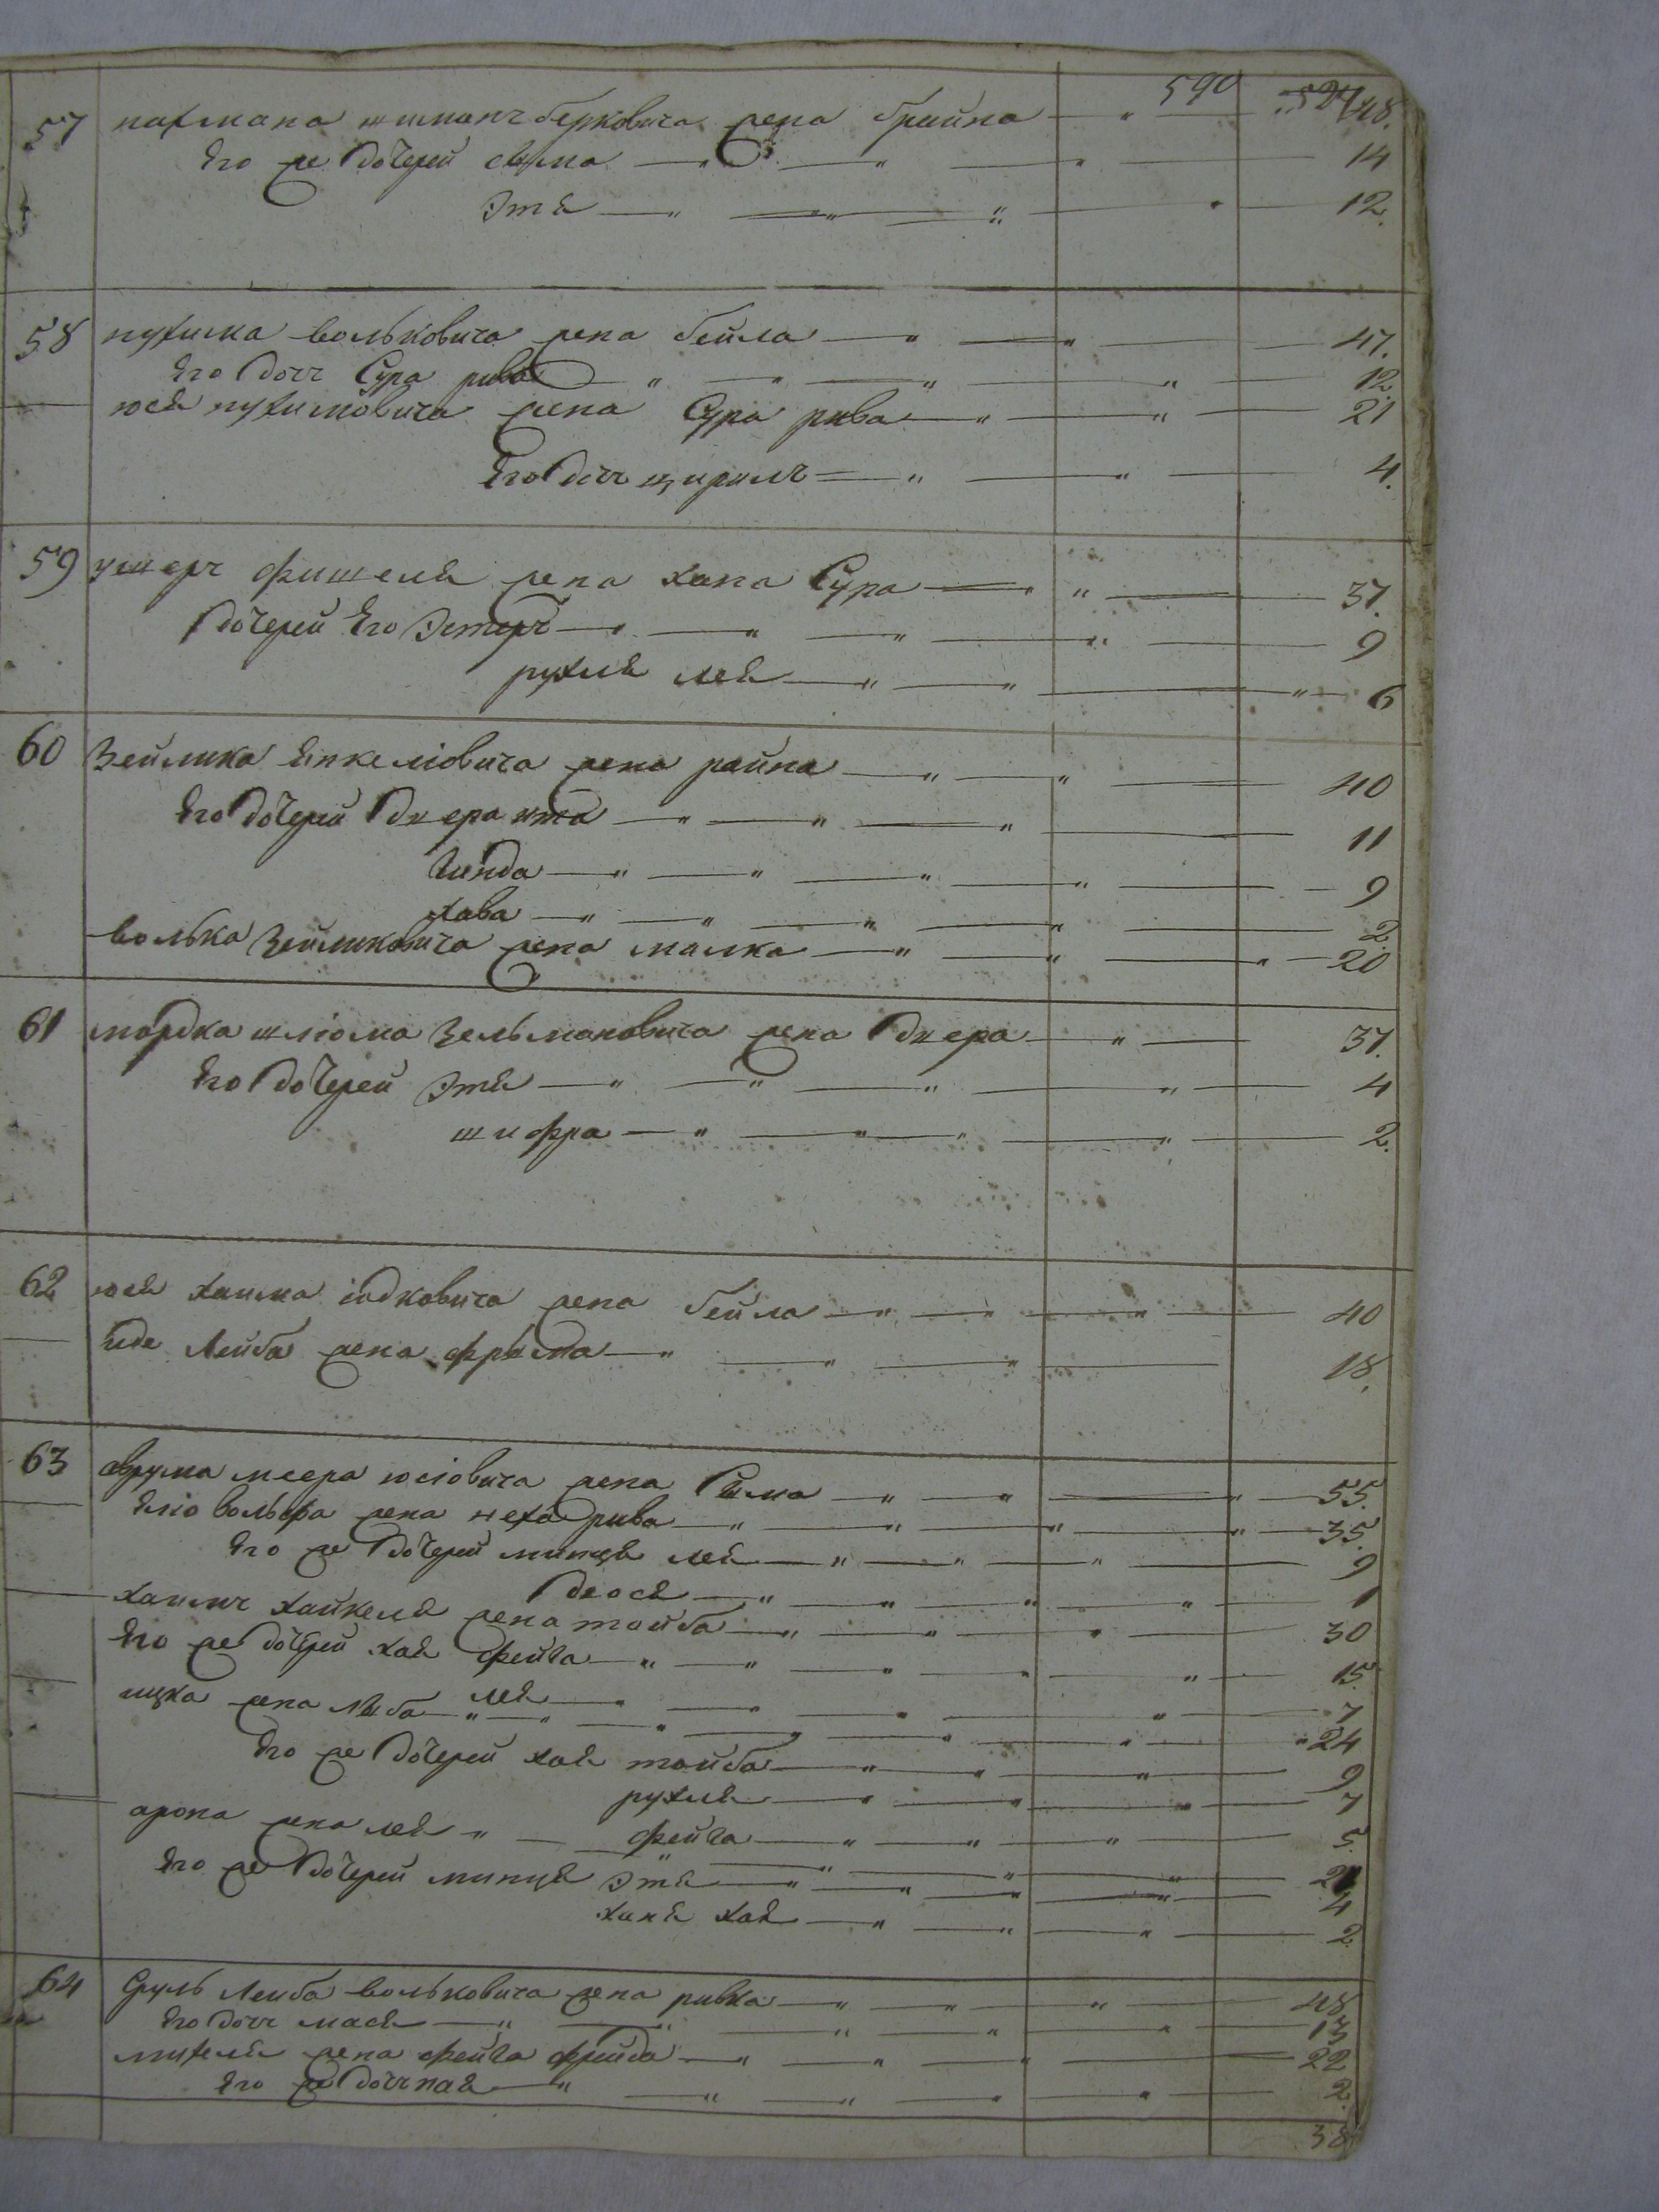 590
57 нахмана шиманъ берковича жена брайна 48.
Его же дочерей сима 14
Этя 12.
58 нухима вольковича жена бейла 47.
Его дочъ Сура рива 12
юся нухимовича жена Сура рива 21
Его дочъ цирилъ 4.
59 ушеръ фишеля жена хана Сура 37.
дочерей Его Эстеръ 9
рухля лея 6
60 Зейлика янкеліовича жена райна 40
Его дочерей двера 11
гинда 9
хава 2
волька Зейликовича жена малка 20
61 мордка шліома Зельмановича жена двера 37.
Его дочерей Этя 4
шифра 2.
62 юся хаима іодковича жена бейла 40
лейба жена фрума 18
63 аврума меера юсіовича жена Сима 55.
Еліо вольфа жена неха рива 35.
Его же дочерей минця лея 9
двося 1
хаимъ хайкеля жена тойба 30
Его же дочерей хая фейга 15
лея 7
ицка жена 24
Его же дочерей хая тойба 9
рухля 7
фейга 5
арона жена лея 21
Его же дочерей минця Этя 4
ханя хая 2
64 Сруль Лейба вольковича жена ривка 48
Его дочъ мася 13
михеля жена фейга фрейда 22
Его же дочъ 2.
38